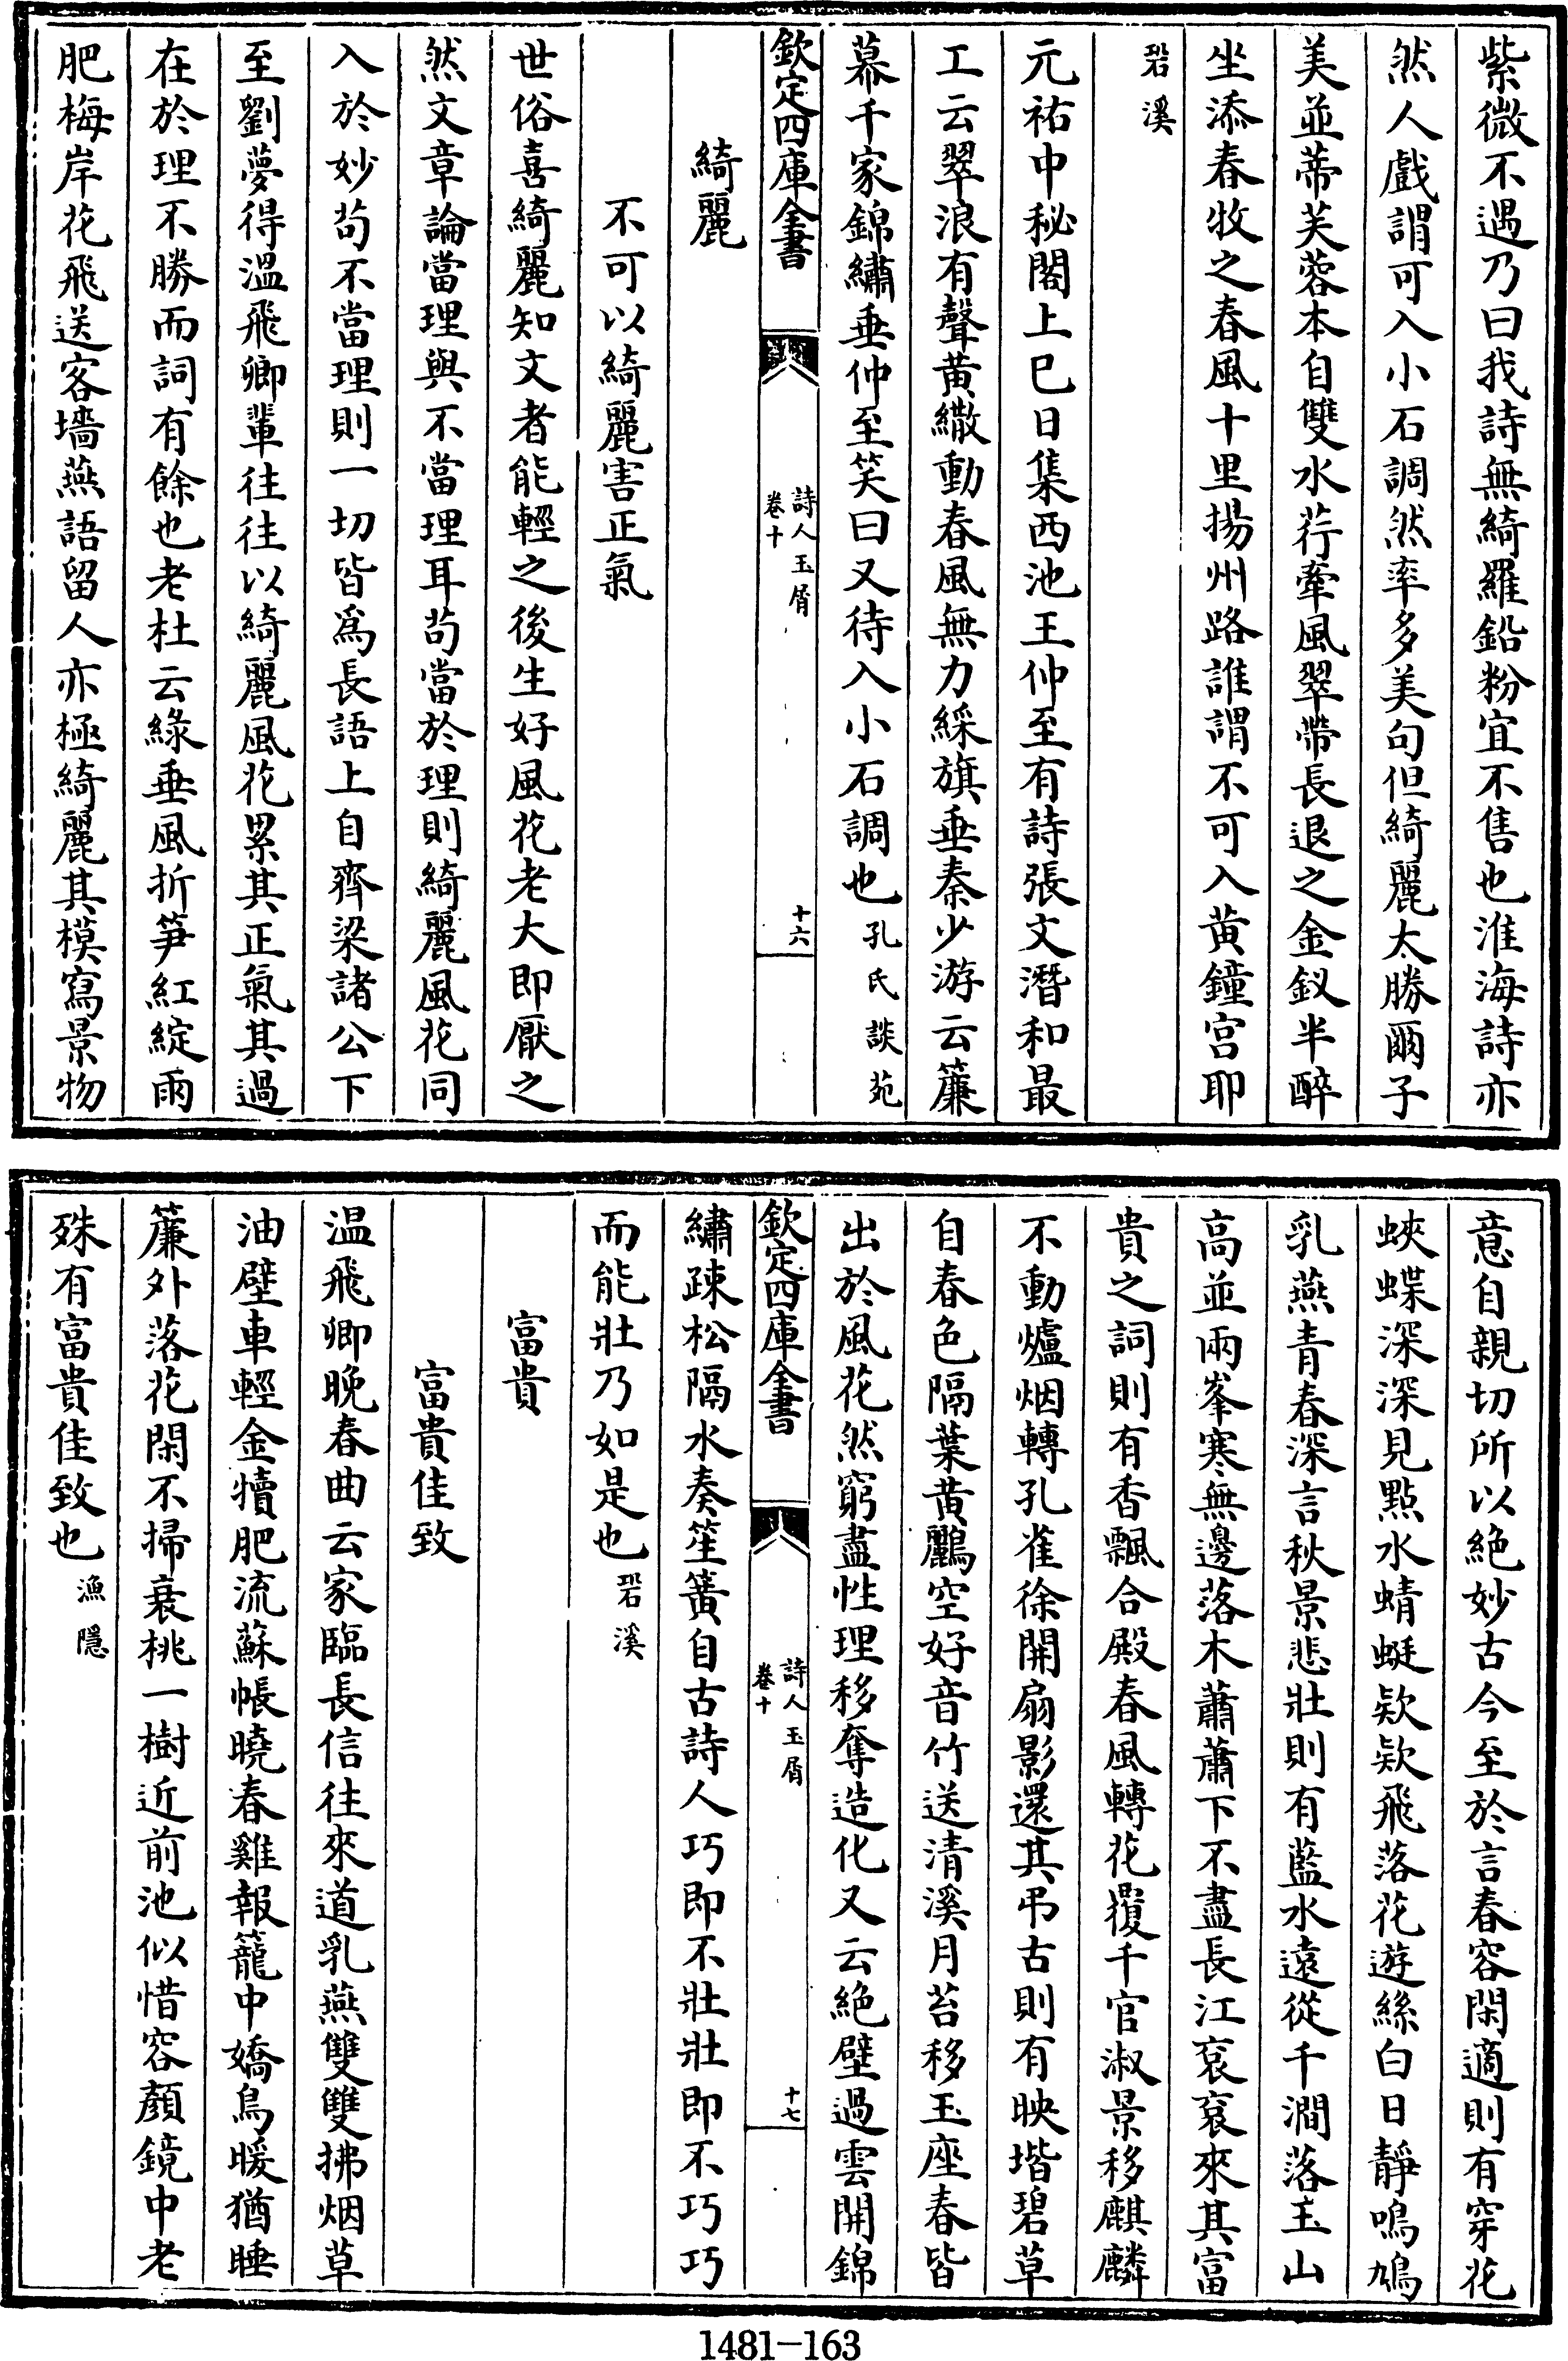 紫微不遇乃曰我詩無綺羅鉛粉宜不售也淮海詩亦
然人戲謂可入小石調然率多美句但綺麗太勝爾子
美並蒂芙蓉本自雙水荇牽風翠帶長退之金釵半醉
坐添春牧之春風十里揚州路誰謂不可入黄鐘宫耶
䂬溪
元祐中秘閣上巳日集西池王仲至有詩張文潛和最
工云翠浪有聲黄繖動春風無力綵旗垂秦少游云簾
幕千家錦繡垂仲至笑曰又待入小石調也孔氏談苑
欽定四庫全書
詩人玉屑
卷十
十六
綺麗
不可以綺麗害正氣
世俗喜綺麗知文者能輕之後生好風花老大即厭之
然文章論當理與不當理耳茍當於理則綺麗風花同
入於妙茍不當理則一切皆為長語上自齊梁諸公下
至劉夢得溫飛卿輩往往以綺麗風花累其正氣其過
在於理不勝而詞有餘也老杜云綠垂風折笋紅綻雨
肥梅岸花飛送客墻燕語留人亦極綺麗其模寫景物
意自親切所以絶妙古今至於言春容閑適則有穿花
蛺蝶深深見點水蜻蜓欵欵飛落花遊絲白日靜鳴鳩
乳燕青春深言秋景悲壯則有藍水遠從千澗落玉山
高並兩峯寒無邊落木蕭蕭下不盡長江衮衮來其富
貴之詞則有香飄合殿春風轉花覆千官淑景移麒麟
不動爐烟轉孔雀徐開扇影還其弔古則有映堦碧草
自春色隔葉黄鸝空好音竹送清溪月苔移玉座春皆
出於風花然窮盡性理移奪造化又云絶壁過雲開錦
欽定四庫全書
詩人玉屑
卷十
十七
繡疎松隔水奏笙簧自古詩人巧即不壯壯即不巧巧
而能壯乃如是也䂬溪
富貴
富貴佳致
温飛卿晚春曲云家臨長信往來道乳燕雙雙拂烟草
油壁車輕金犢肥流蘇帳曉春雞報籠中嬌鳥暖猶睡
簾外落花閑不掃衰桃一樹近前池似惜容顏鏡中老
殊有富貴佳致也漁隱
1481-163